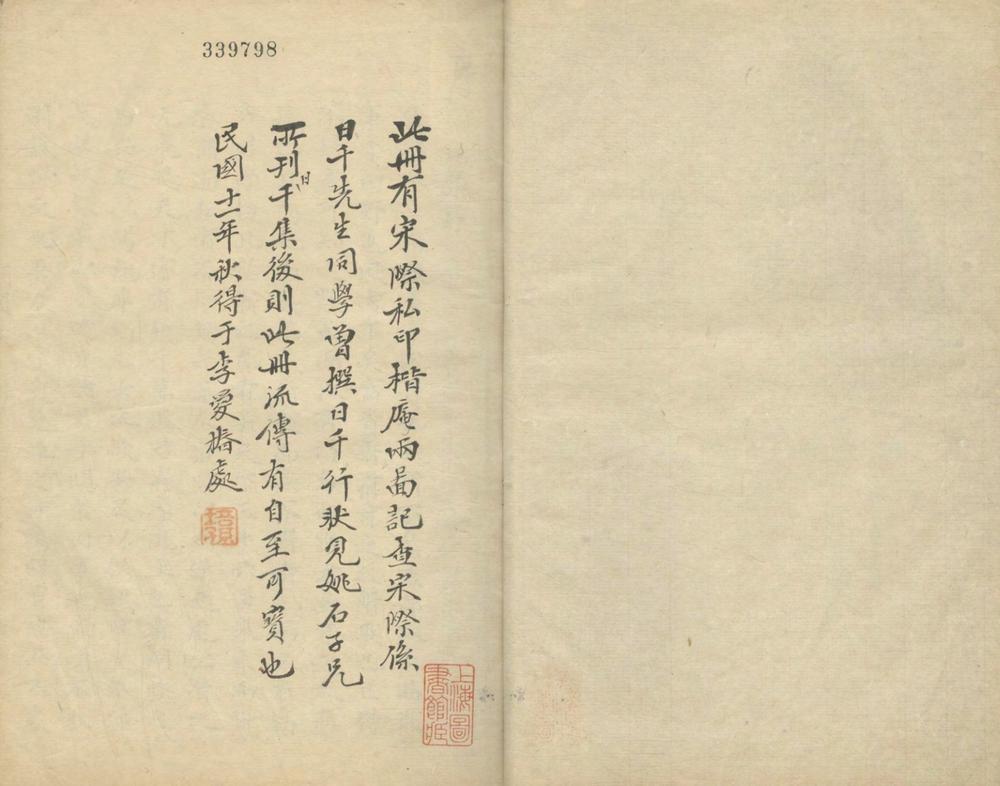 339798
此冊有宋際私印楷庵兩圖記查宋際係
日千先生同學曽撰日千行狀見姚石子兄
所刊日千集後則此冊流傳有自至可寳也
民國十一年秋得于李愛椿處
上海圖
書館藏